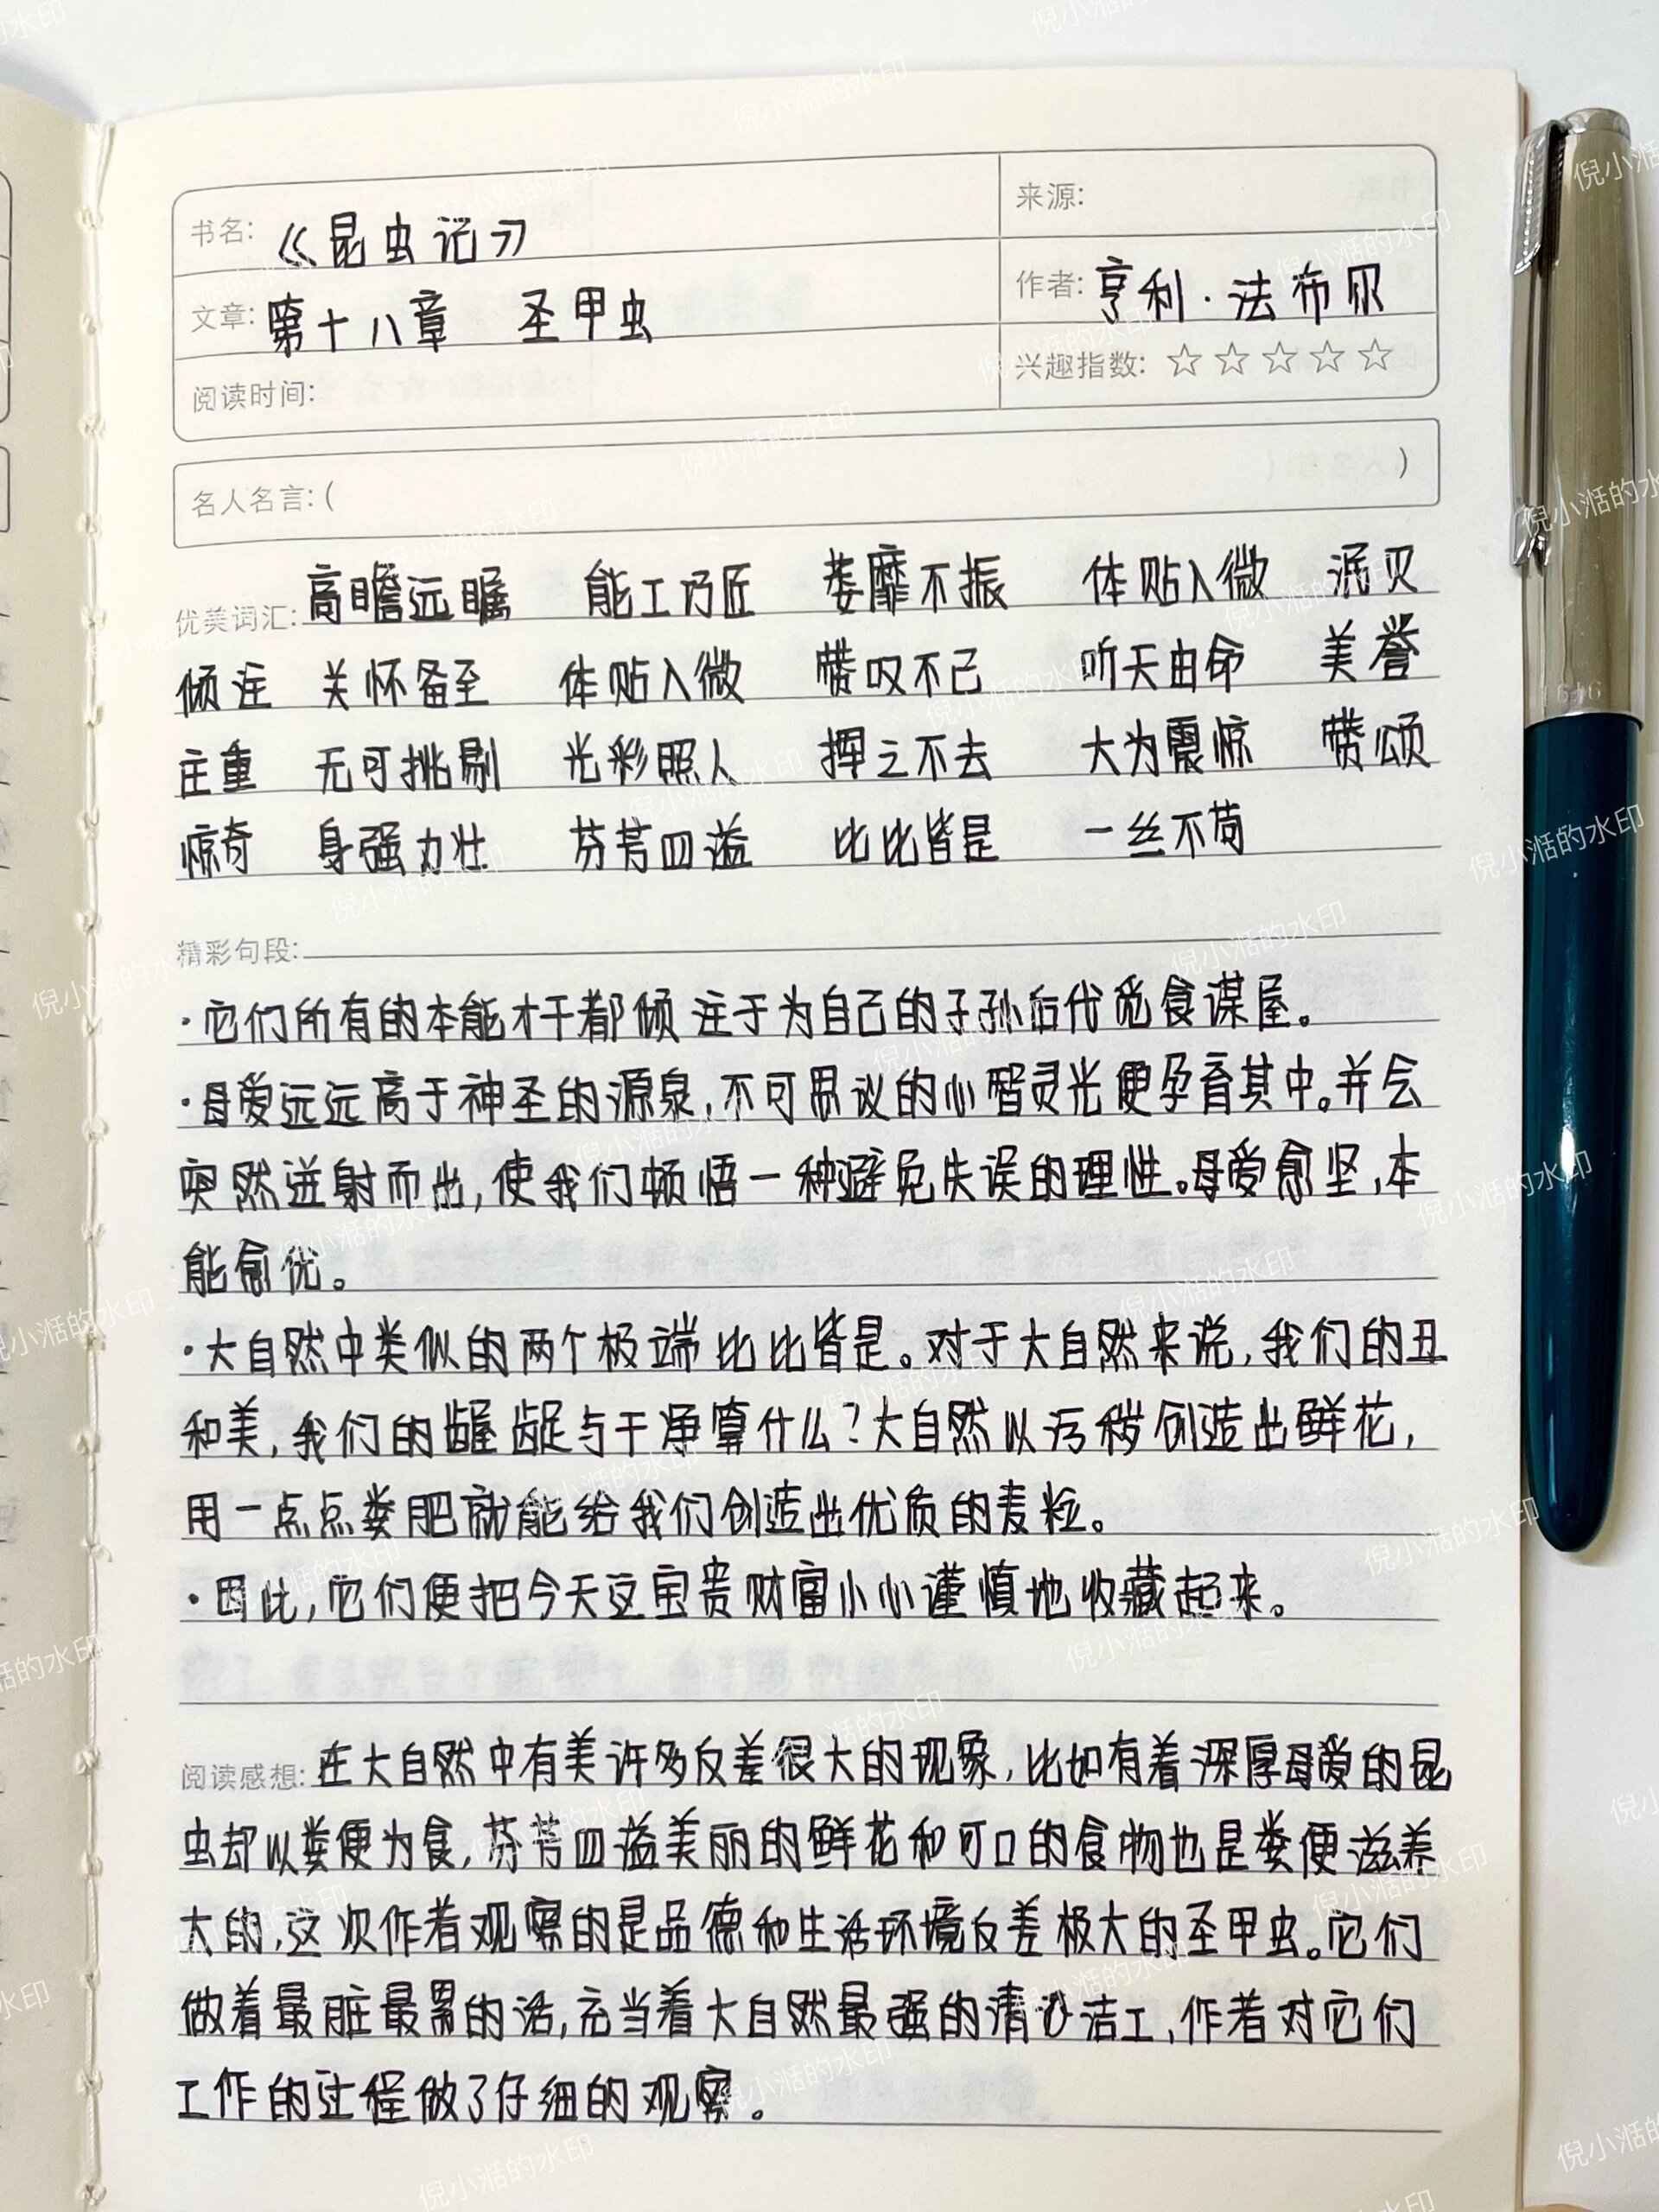 书名:《昆虫记》 来源:
文章:第十八章 圣甲虫 作者:亨利·法布尔
阅读时间: 兴趣指数:☆☆☆☆☆
名人名言:( )
优美词汇: 高瞻远瞩 能工巧匠 萎靡不振 体贴入微
倾注 关怀备至 体贴入微 赞叹不已 听天由命 美誉
庄重 无可挑剔 光彩照人 挥之不去 大为震惊 赞颂
惊奇 身强力壮 芬芳四溢 比比皆是 一丝不苟
精彩句段:
·它们所有的本能才干都倾注于为自己的子孙后代觅食谋屋。
·母爱远远高于神圣的源泉,不可思议的心智灵光便孕育其中。并会
突然迸射而出,使我们顿悟一种避免失误的理性。母爱愈坚,本
能愈优。
·大自然中类似的两个极端比比皆是。对于大自然来说,我们的丑
和美,我们的龌龊与干净算什么?大自然以污秽创造出鲜花,
用一点点粪肥就能给我们创造出优质的麦粒。
·因此,它们便把今天这宝贵财富小心谨慎地收藏起来。
阅读感想:在大自然中有美许多反差很大的现象,比如有着深厚母爱的昆
虫却以粪便为食,芬芳四溢美丽的鲜花和可口的食物也是粪便滋养
大的,这次作者观察的是品德和生活环境反差极大的圣甲虫。它们
做着最脏最累的活,充当着大自然最强的清洁工,作者对它们
工作的过程做了仔细的观察。
倪小湉的水印